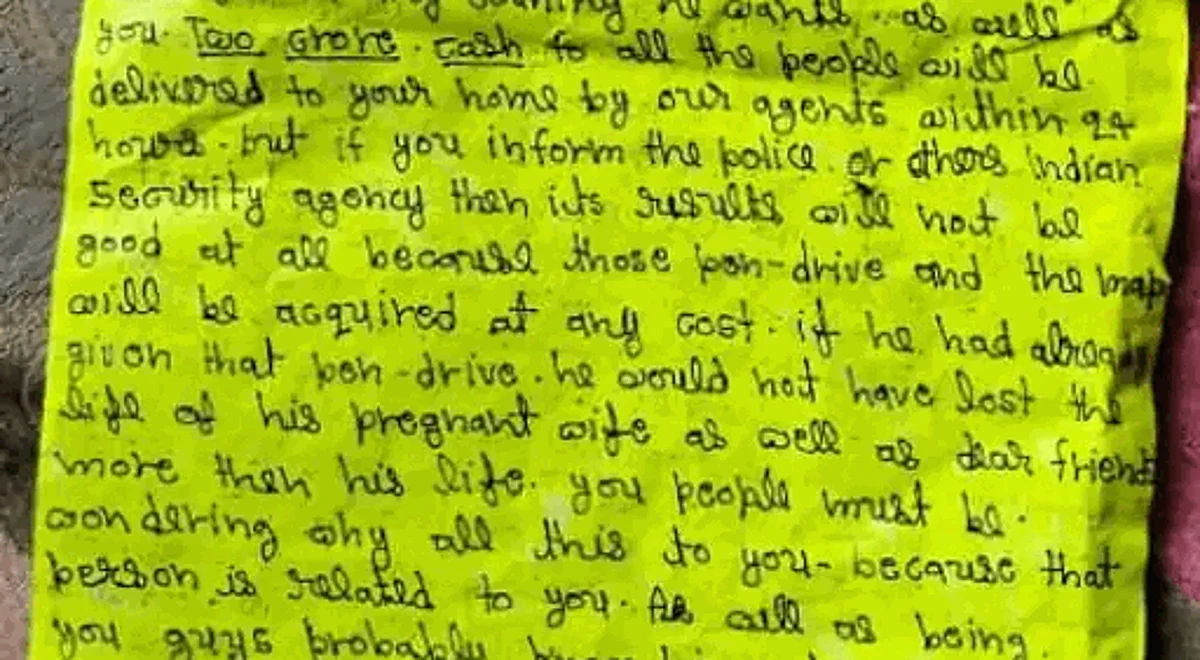 he wants. as well as
you. Two Crore. cash to all the people will be
delivered to your home by our agents within 24
hours. but if you inform the police. or others indian
Security agency then its results will not be
good at all because those pen-drive and the map
will be acquired at any cost. if he had already
given that pen-drive. he would not have lost the
life of his pregnant wife as well as dear friend
more then his life. you people must be.
wondering why all this to you- because that
person is related to you. As well as being.
you guys probably